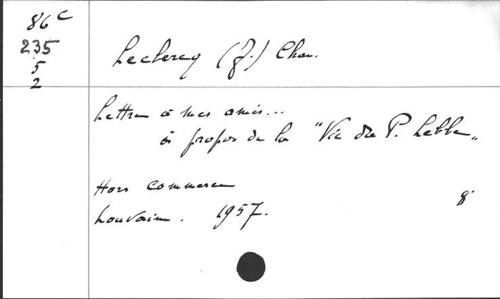 86 c
235
5
2
Leclercq (J.) Chan.
Lettre à mes amis...
à propos de la "Vie du P. Lebbe"
Hors commerce
Louvain. 1957.
8